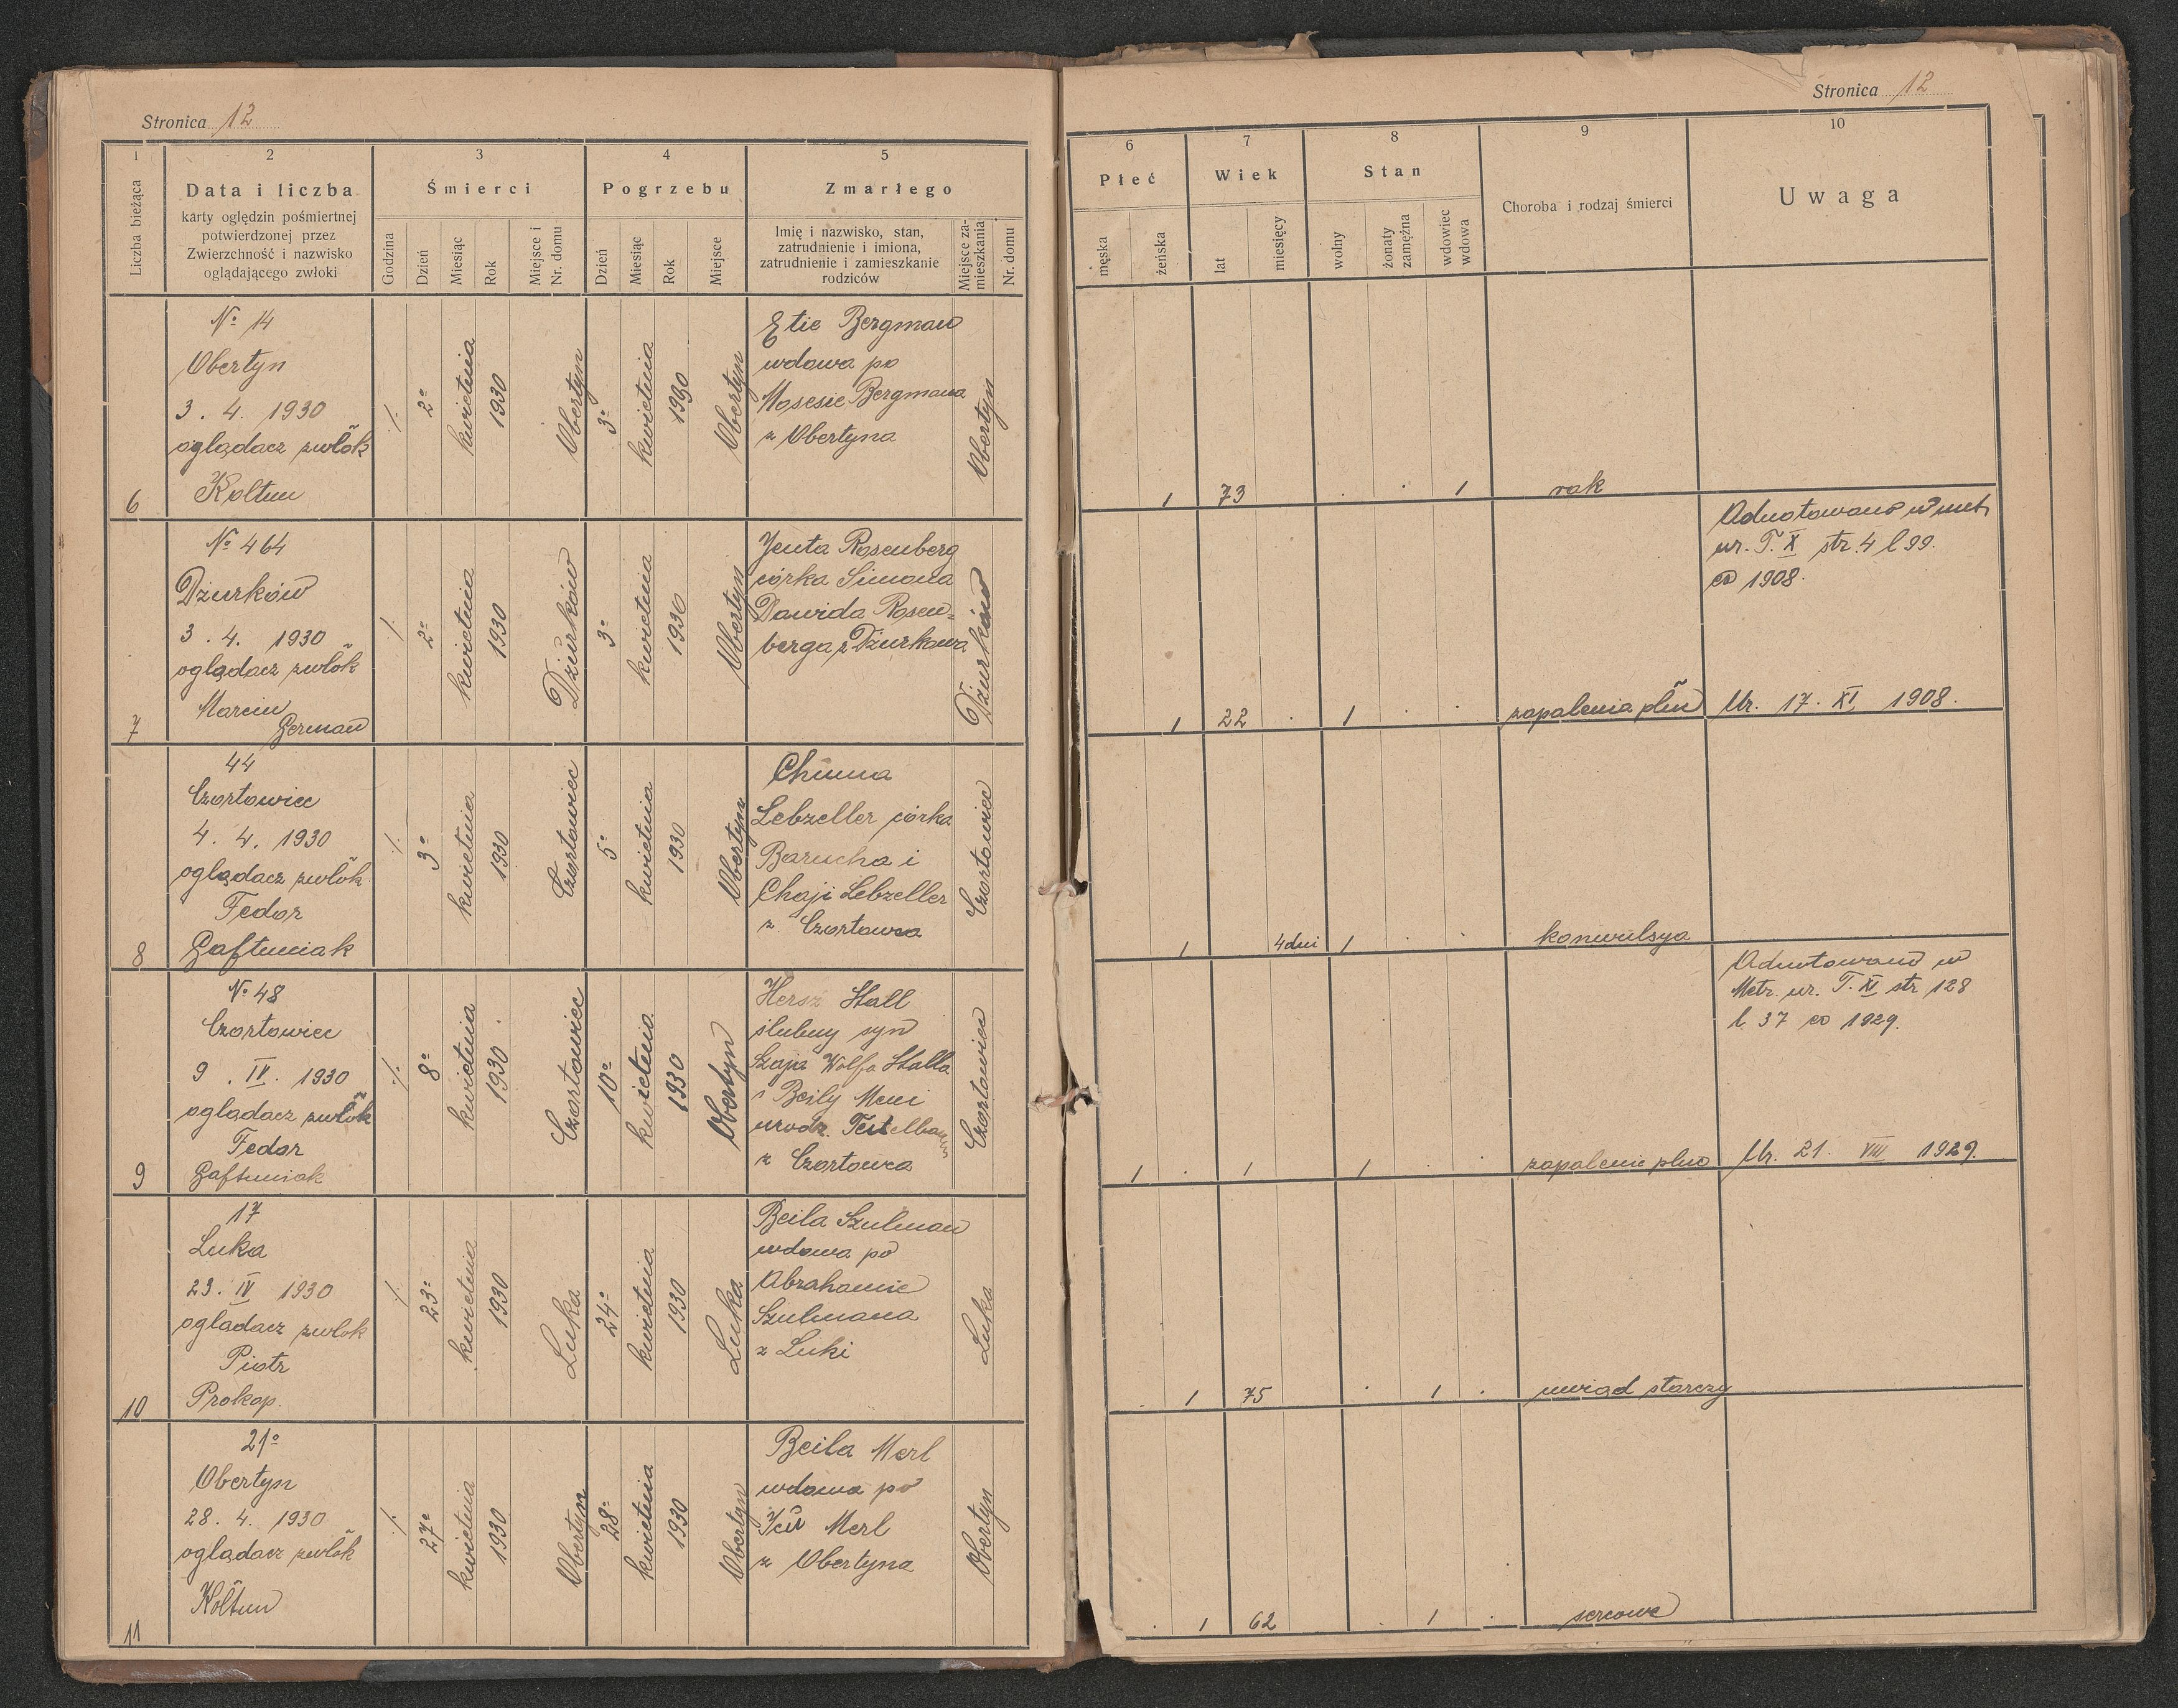 Stronica 12
1
2
3
4
5
Liczba bieżąca
Data i liczba
karty oględzin pośmiertnej
potwierdzonej przez
Zwierzchność i nazwisko
oglądającego zwłoki
Śmierci
Godzina
Dzień
Miesiąc
Rok
Miejsce i
Nr. domu
Pogrzebu
Dzień
Miesiąc
Rok
Miejsce
Zmarłego
Imię i nazwisko, stan,
zatrudnienie i imiona,
zatrudnienie i zamieszkanie
rodziców
Miejsce za-
mieszkania
Nr. domu
6
No 14
Obertyn
3. 4. 1930
oglądacz zwłok
Koltun
2o
kwietnia
1930
Obertyn
3o
kwietnia
1930
Obertyn
Etie Bergman
wdowa po
Mosesie Bergmana
z Obertyna
Obertyn
7
No 464
Dżurków
3. 4. 1930
oglądacz zwłok
Marcin
German
2o
kwietnia
1930
Dżurków
3o
kwietnia
1930
Obertyn
Jenta Rosenberg
córka Simona
Dawida Rosen-
berga z Dżurkowa
Dżurków
8
44
Czortowiec
4. 4. 1930
oglądacz zwłok
Fedor
Gaftuniak
3o
kwietnia
1930
Czortowiec
5o
kwietnia
1930
Obertyn
Chinna
Lebzeller córka
Barucha i
Chaji Lebzeller
z Czortowca
Czortowiec
9
No 48
Czortowiec
9. IV. 1930
oglądacz zwłok
Fedor
Gaftuniak
8o
kwietnia
1930.
Czortowiec
10o
kwietnia
1930
Obertyn
Hersz Stall
ślubny syn
Szaja Wolfa Stalla
i Beily Meni
urodz.
z Czortowca
Czortowiec
10
17
Luka
23. IV 1930
oglądacz zwłok
Piotr
Prokop.
23o
kwietnia
1930
Luka
24o
kwietnia
1930
Luka
Beila Szulman
wdowa po
Abrahamie
Szulmana
z Luki
Luka
11
21o
Obertyn
28. 4. 1930
oglądacz zwłok
Kołtun
27o
kwietnia
1930
Obertyn
28o
kwietnia
1930
Obertyn
Beila Merl
wdowa po
Merl
z Obertyna
Obertyn
Stronica 12
6
7
8
9
10
Płeć
męska
żeńska
Wiek
lat
miesięcy
Stan
wolny
żonaty
zamężna
wdowiec
wdowa
Choroba i rodzaj śmierci
Uwaga
1 73 . . 1 rak
Adnotowano w met.
ur. T. X str. 4 l 99.
ex 1908.
1 22 . 1 . . zapalenia płuc Ur. 17. XI 1908.
1 4 dni 1 . . konwulsya
Adnotowano w
Metr. ur. T. XI str 128
l. 37 ex 1929.
1 . 1 1 . . zapalenie płuc Ur. 21. VIII 1929.
. 1 75 . 1 . uwiąd starczy
. 1 62 . 1 . sercowe